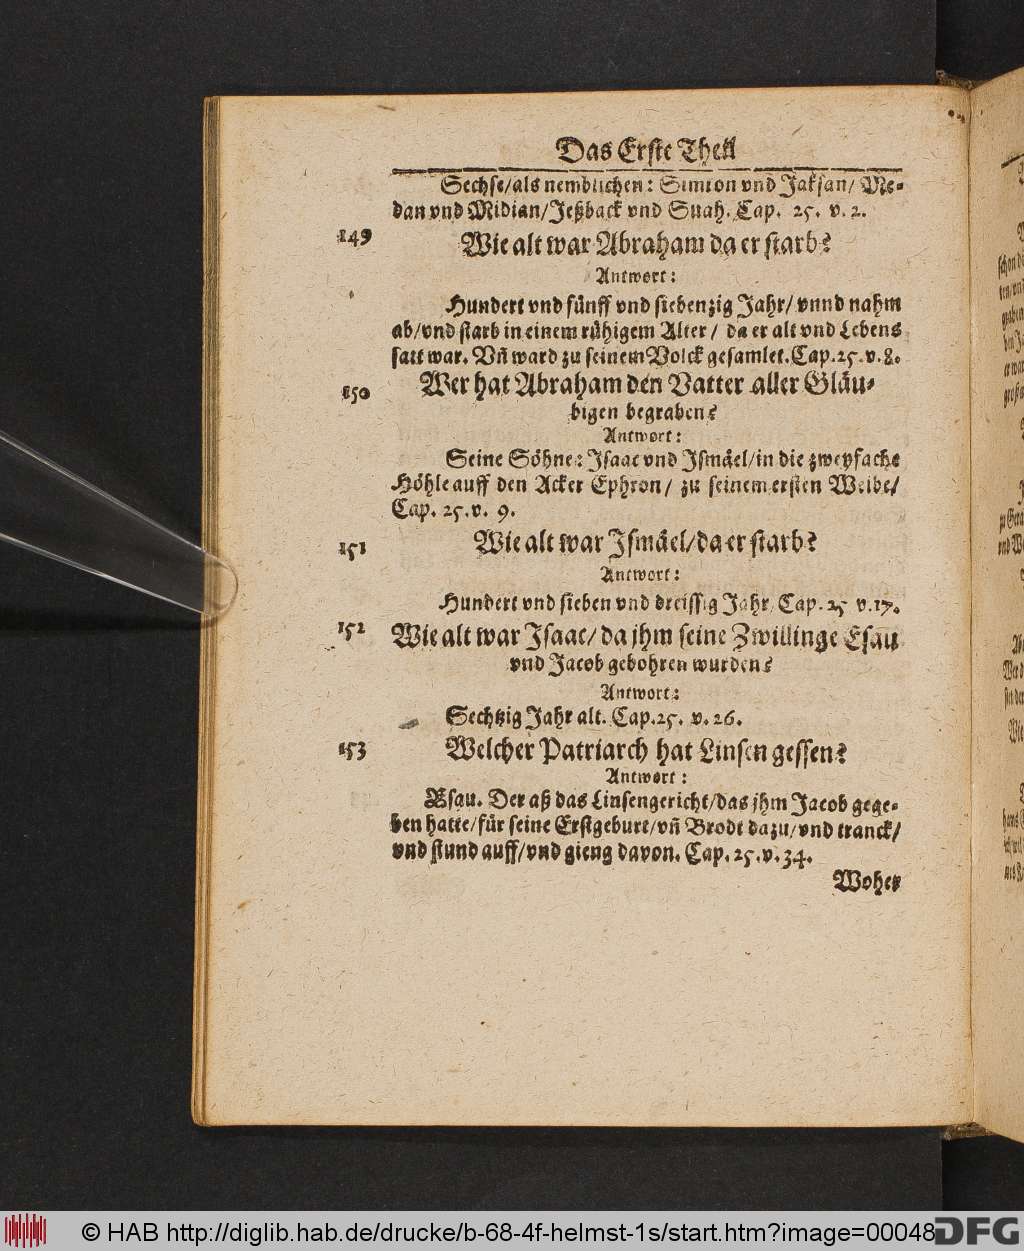 Das Erste Theil
Sechse/als nemblichen: Simron vnd Jaksan/ Me-
dan vnd Midian/Jeßback vnd Suah. Cap. 25. v. 2.
149 Wie alt war Abraham da er starb?
Antwort:
Hundert vnd fünff vnd siebenzig Jahr/ vnnd nahm
ab/vnd starb in einem rühigem Alter/ da er alt vnd Lebens
satt war. Vn̄ ward zu seinem Volck gesamlet. Cap. 25. v. 8.
150 Wer hat Abraham den Vatter aller Gläu-
bigen begraben?
Antwort:
Seine Söhne: Isaac vnd Ismäel/in die zweyfache
Höhle auff den Acker Ephron/ zu seinem ersten Weibe/
Cap. 25. v. 9.
151 Wie alt war Ismäel/da er starb?
Antwort:
Hundert vnd sieben vnd dreissig Jahr, Cap. 25 v. 17.
152 Wie alt war Isaac/ da jhm seine Zwillinge Esau
vnd Jacob gebohren wurden?
Antwort:
Sechtzig Jahr alt. Cap. 25. v. 26.
153 Welcher Patriarch hat Linsen gessen?
Antwort:
Esau. Der aß das Linsengericht/das jhm Jacob gege-
ben hatte/für seine Erstgeburt/vn̄ Brodt dazu/vnd tranck/
vnd stund auff/vnd gieng davon. Cap. 25. v. 34.
Woher
© HAB http://diglib.hab.de/drucke/b-68-4f-helmst-1s/start.htm?image=00048
DFG